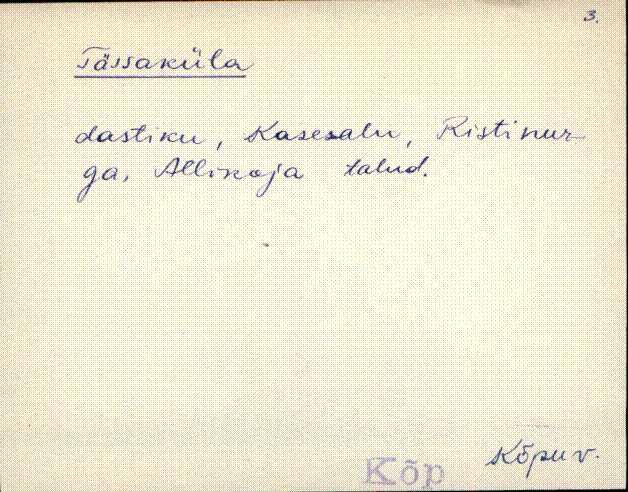 3.
Tässaküla
dastiku, Kasesalu, Ristinur-
ga, Allikoja talud.
Kõp
Kõpu v.